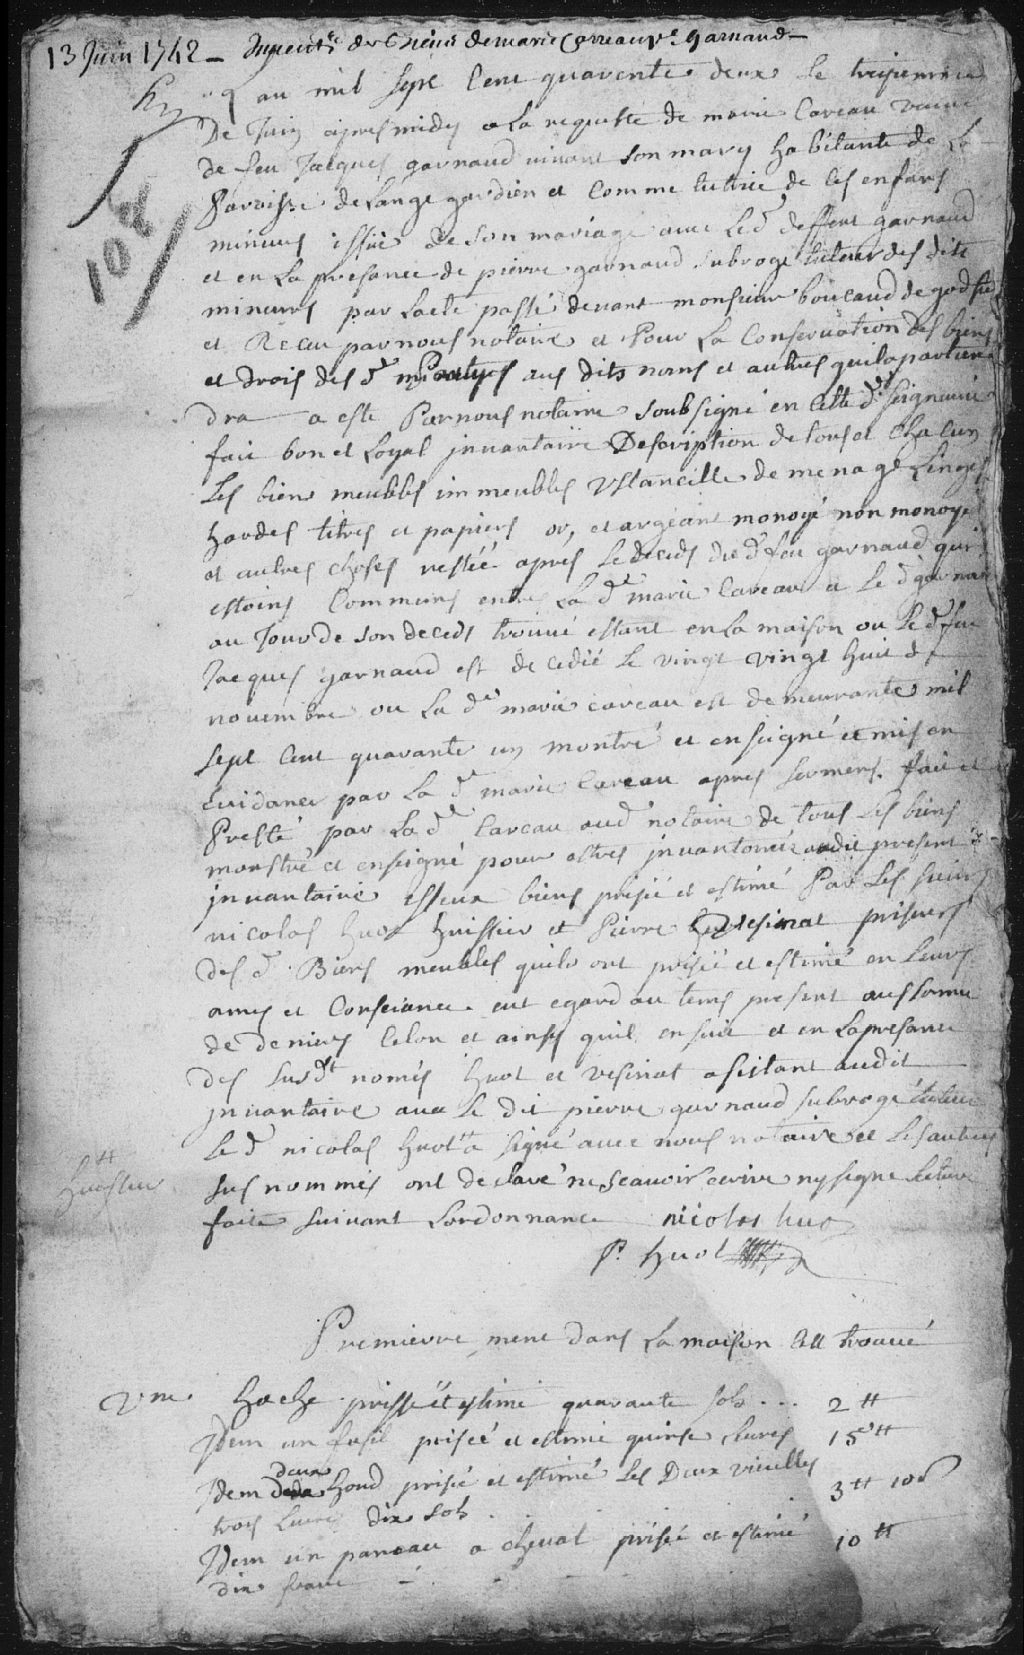 13 Juin 1742 - Inventre des Biens de marie Carreau Ve Garnaud -
Lan mil sept Cent quarente deux le treziemme
De Juin apres midy a La requeste de marie Careau veuve
de feu Jacques garnaud vivant son mary habitante de La
Paroisse de Lange gardien et Comme tutrice de ces enfans
mineurs issüe de son mariage avec Led deffent garnaud
et en La presance de pierre garnaud subroge tuteur des dits
mineurs par Lacte passé devant monsieur boucaud de godfus
et Receu par nous notaire et Pour La Conservation des biens
et drois des d mineurs aus dits noms et autres quil apartien
dra a este Par nous notaire soubsigne en Cette de Seigneurie
fait bon et Loyal jnvantaire Description de tous et Chacun
Les biens meubles immeubles Ustancille de menage Linges
hardes titres et papiers or, et argeant monoyé non monoyé
et autres choses restée apres Le deceds dud feu garnaud qui
estoins Commeuns entre La de marie Careau a Le d garnau
au Jour de son deceds trouvé estant en La maison ou Le d feu
Jacques garnaud est decedié Le vingt vingt huit de
novembre ou La de marie careau est demeurante mil
sept Cent quarante un montré et enseigné et mis en
Evidance par La de marie Careau apres sermens fait et
Presté par La de Careau aud notaire de tous Les biens
monstré et enseigné pour estres jnvantorié audit present
jnvantaire isseux biens prisée et estimé Par Les sieurs
nicolas huot huissier et Pierre Vesinat priseurs
des d Biens meubles quils ont prisée et estimé en Leurs
ames et Consciance eut egard au tems present aus somme
de deniers Celon et ainsy quil ensuit et en La presance
des susdt només huot et vesinat asistant audit
jnvantaire avec Le dit pierre garnaud subrogé tuteur
Le d nicolas huot a signé avec nous notaire et Les autres
sus nommés ont declaré ne scavoir ecrire ny signe Lecture
faite suivant Lordonnance nicolas huot
P. huot
Premierre ment dans La maison Cest trouvé
Une hache prisse et estimé quarante sols . . . 2 ℔
Jdem un fusil prisée et estimé quinse Livres 15 ℔
Jdem deux houd prisée et estimé Les Deux vieilles
trois Livres dix sols . 3 ℔ 10 s
Jdem un paneau a cheval prisée et estimé 10 ℔
dix franc -